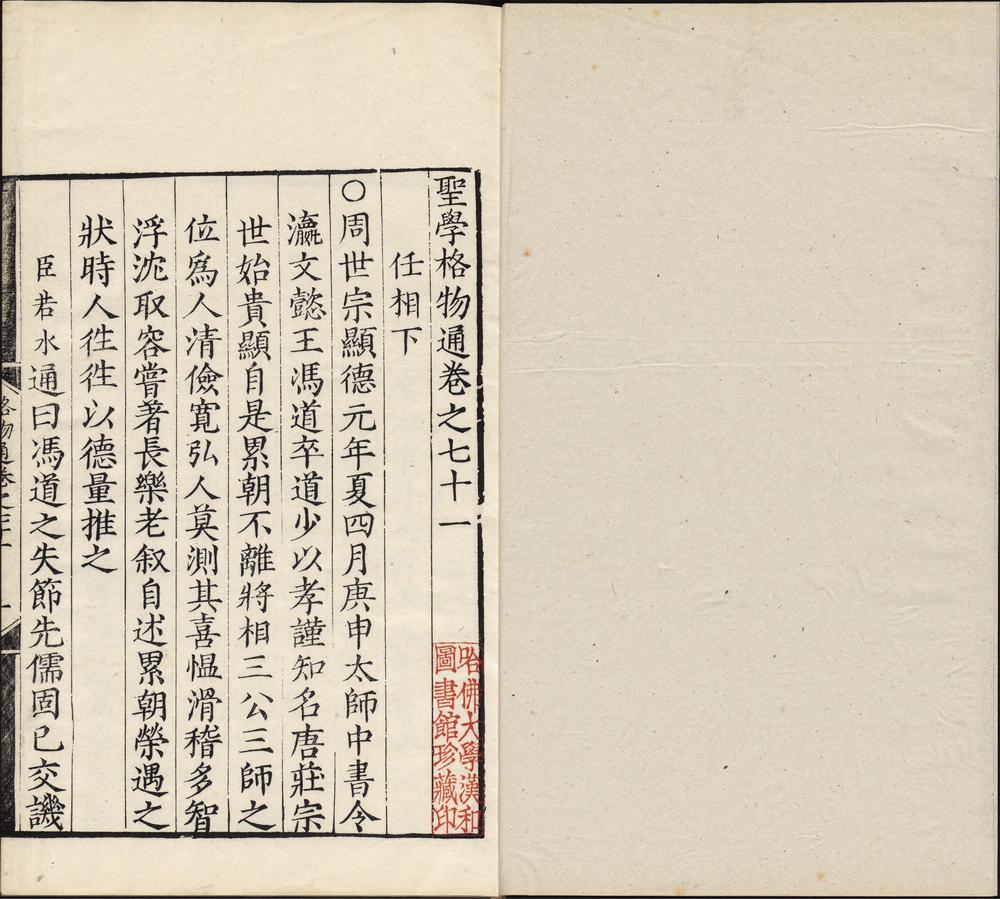 聖學格物通卷之七十一
任相下
○周世宗顯德元年夏四月庚申太師中書令
瀛文懿王馮道卒道少以孝謹知名唐莊宗
世始貴顯自是累朝不離將相三公三師之
位爲人清儉寬弘人莫測其喜愠滑稽多智
浮沈取容嘗著長樂老叙自述累朝榮遇之
狀時人徃徃以德量推之
臣若水通曰馮道之失節先儒固已交譏
哈佛大學漢和
圖書館珍藏印
格物通卷之七十一